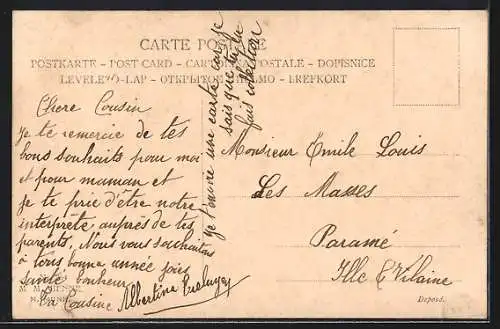 CARTE POSTALE
POSTKARTE - POST CARD - CARTOLINA POSTALE - DOPISNICE
LEVELEZŐ-LAP - ОТКРЫТОЕ ПИСЬМО - BREFKORT
Chere Cousin
Je te remercie de tes
bons souhaits pour moi
et pour maman et
je te prie d'être notre
interprète auprès de tes
parents. Nous vous souhaitons
à tous bonne année joie
santé bonheur
Ta Cousine Albertine
Je t'envoie une carte car je
sais que tu en
fais collection
Monsieur Emile Louis
Les Masses
Paramé
Ille & Vilaine
M. M. VIENNE
Deposé.